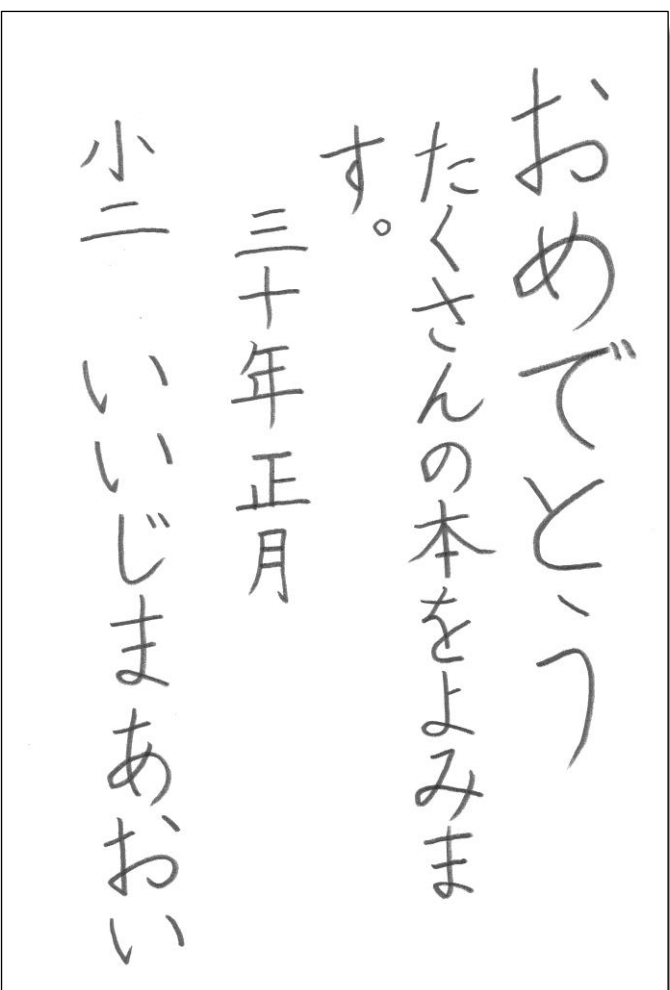 おめでとう
たくさんの本をよみま
す。
三十年正月
小二　いいじまあおい